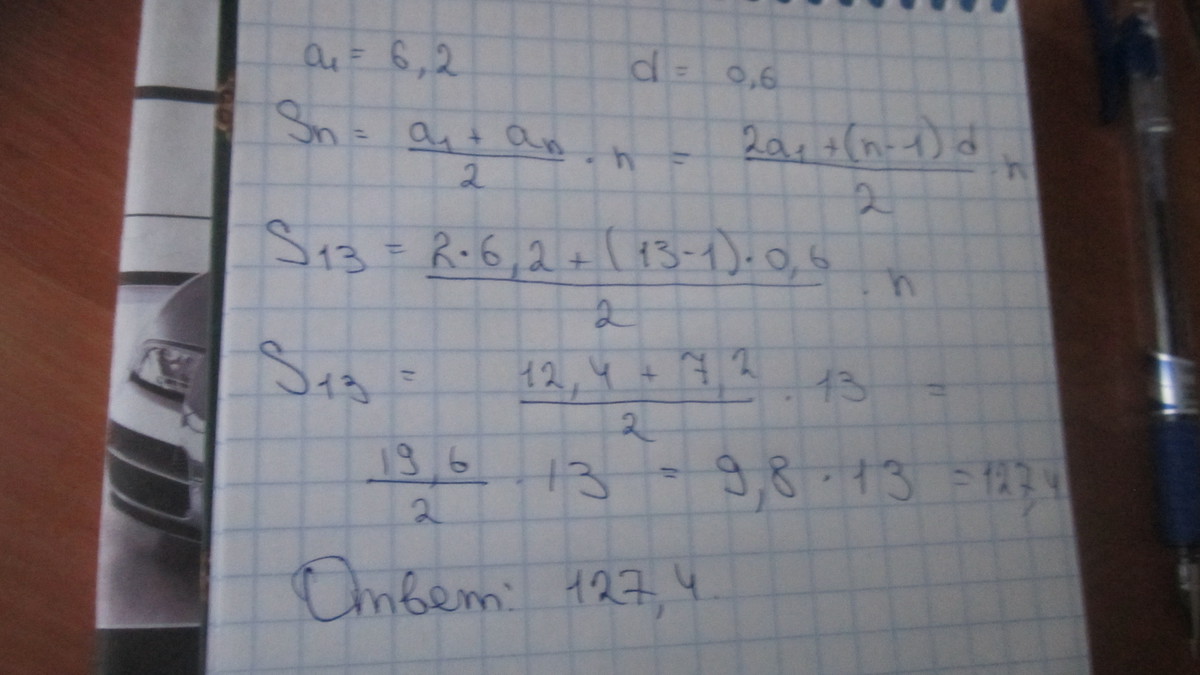 a₁ = 6,2 d = 0,6
Sn = (a₁ + an)/2 · n = (2a₁ + (n-1)d)/2 · n
S13 = (2·6,2 + (13-1)·0,6)/2 · n
S13 = (12,4 + 7,2)/2 · 13 =
19,6/2 · 13 = 9,8 · 13 = 127,4
Ответ: 127,4.